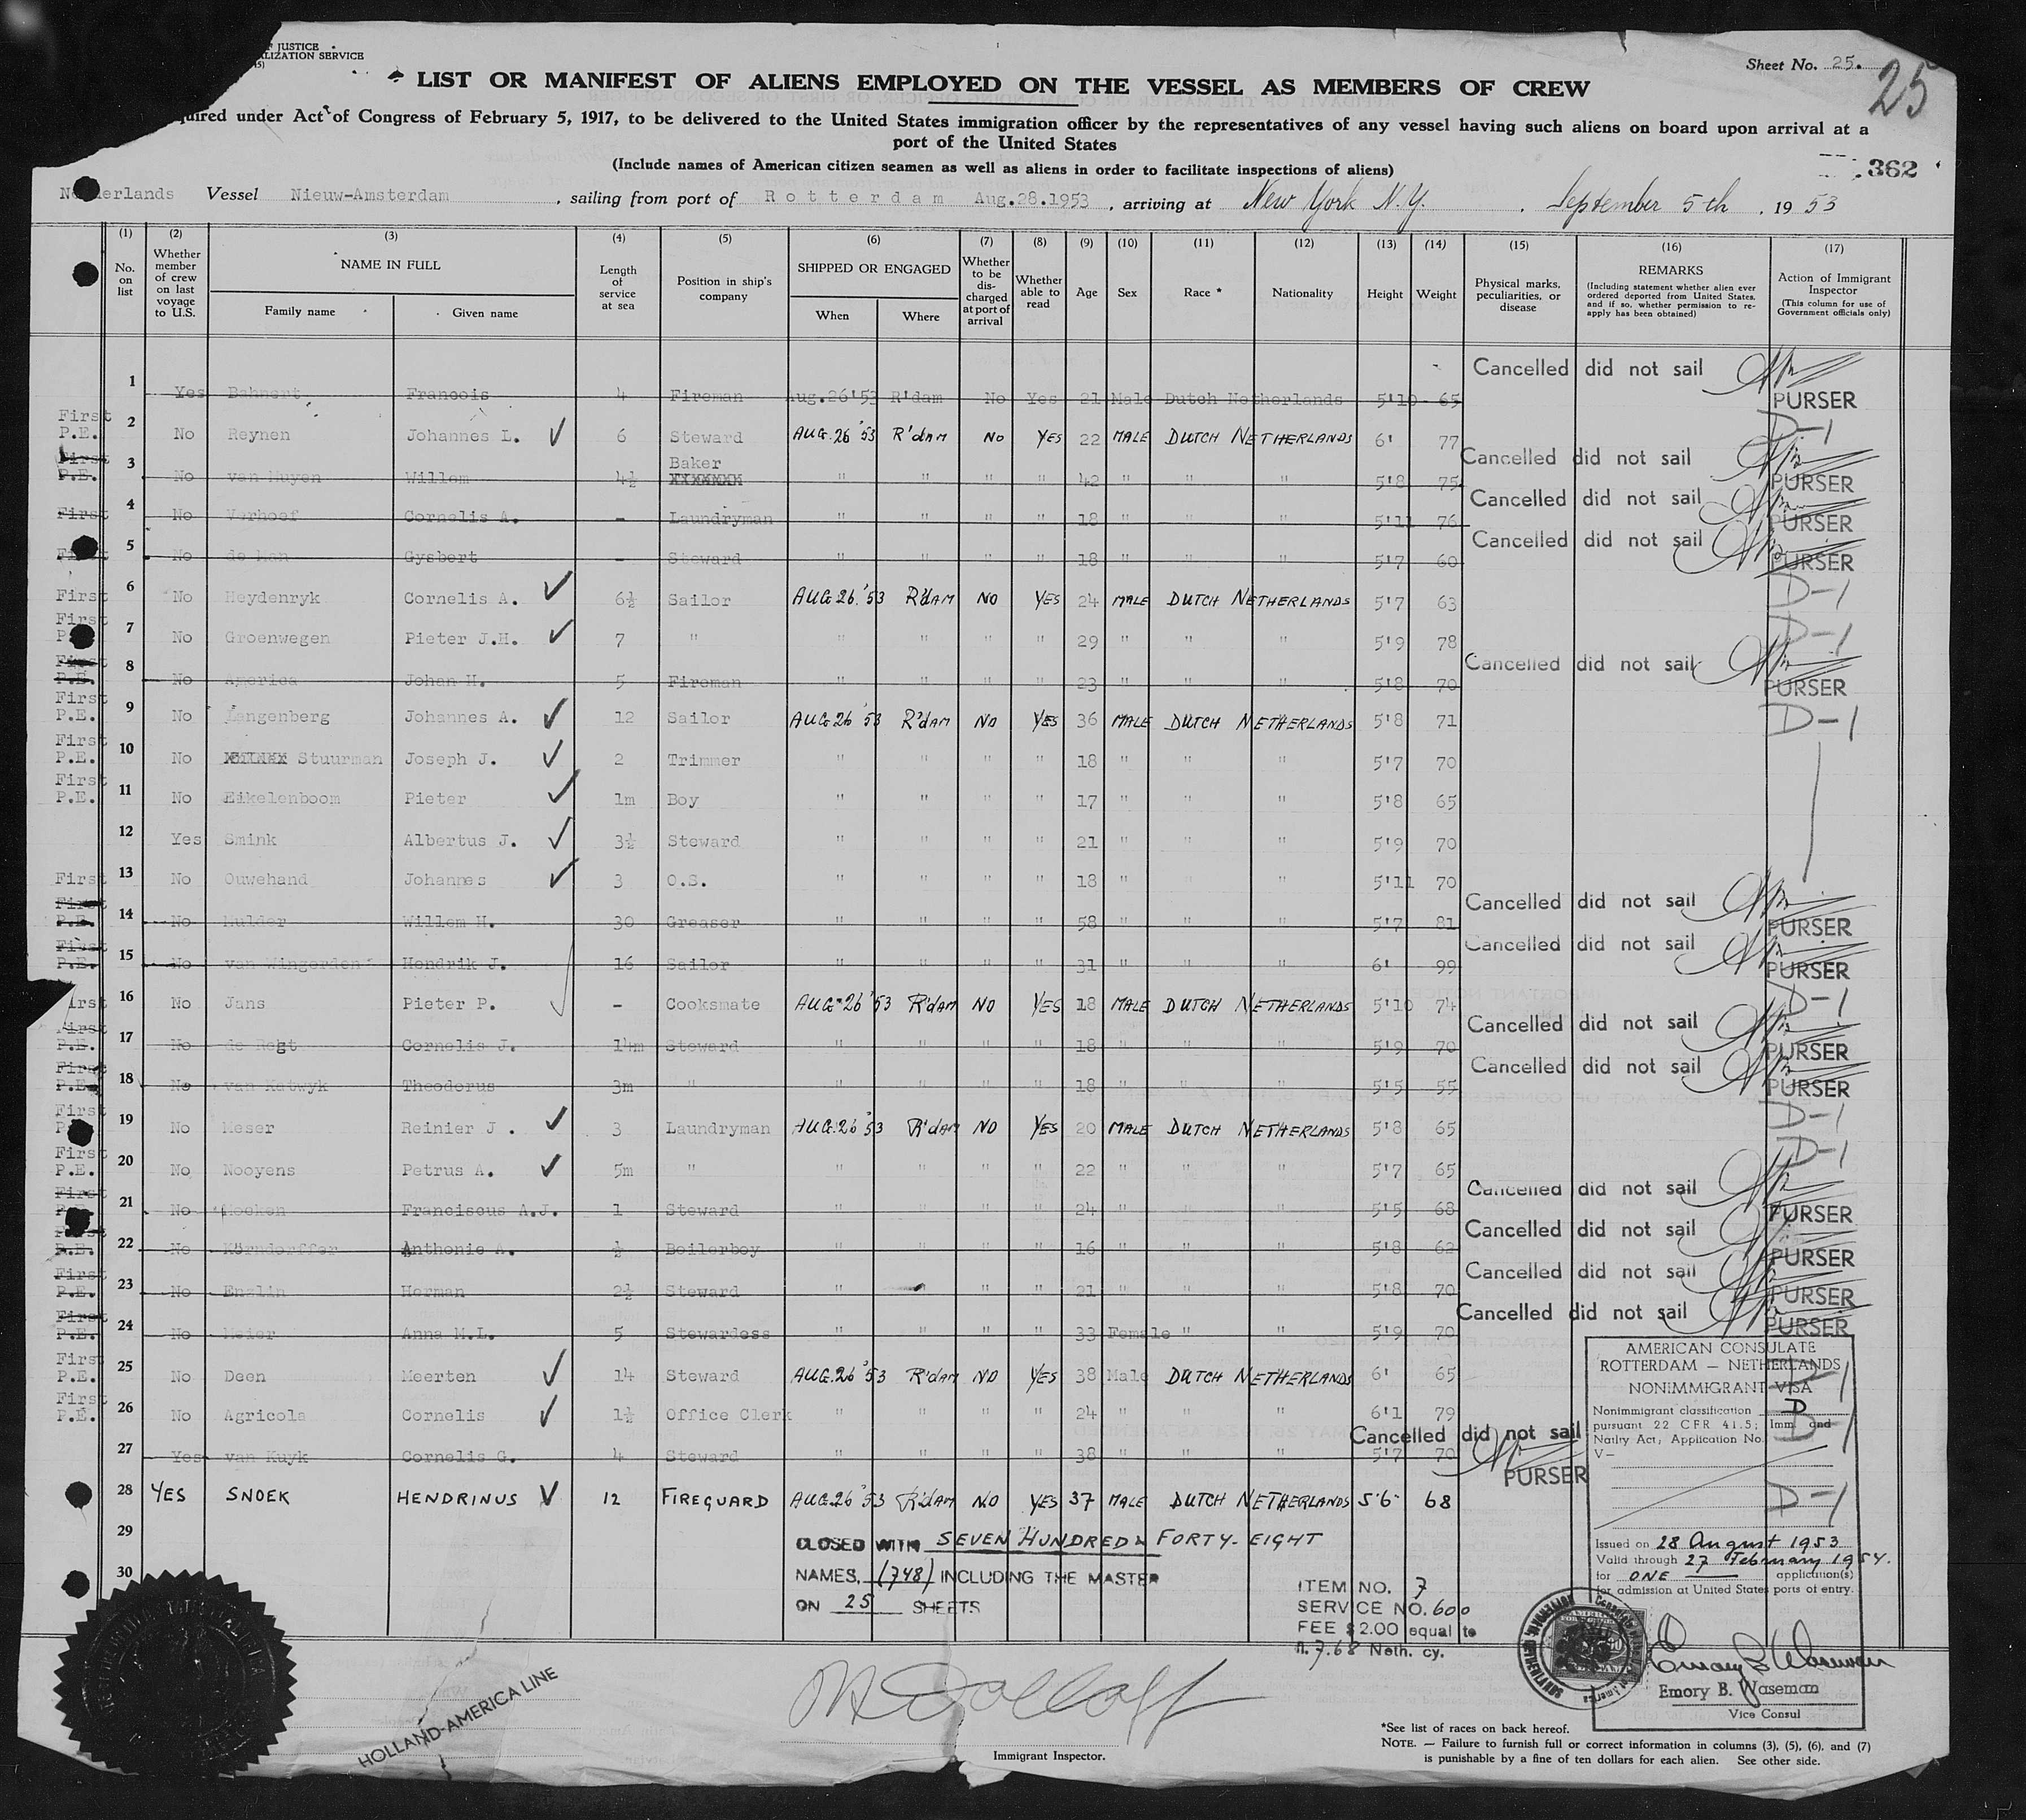 F JUSTICE
LIZATION SERVICE
Sheet No. 25.
25
LIST OR MANIFEST OF ALIENS EMPLOYED ON THE VESSEL AS MEMBERS OF CREW
quired under Act of Congress of February 5, 1917, to be delivered to the United States immigration officer by the representatives of any vessel having such aliens on board upon arrival at a
port of the United States
(Include names of American citizen seamen as well as aliens in order to facilitate inspections of aliens)
362
Netherlands Vessel Nieuw-Amsterdam, sailing from port of Rotterdam Aug.28.1953, arriving at New York N.Y. September 5th, 1953
(1) (2) (3) (4) (5) (6) (7) (8) (9) (10) (11) (12) (13) (14) (15) (16) (17)
No. on list
Whether member of crew on last voyage to U.S.
NAME IN FULL
Family name Given name
Length of service at sea
Position in ship's company
SHIPPED OR ENGAGED
When Where
Whether to be discharged at port of arrival
Whether able to read
Age Sex Race * Nationality Height Weight
Physical marks, peculiarities, or disease
REMARKS
(Including statement whether alien ever ordered deported from United States, and if so, whether permission to re-apply has been obtained)
Action of Immigrant Inspector
(This column for use of Government officials only)
1 Yes Bahnert Francois 4 Fireman Aug.26'53 R'dam No Yes 21 Male Dutch Netherlands 5'10 65 Cancelled did not sail PURSER
First P.E. 2 No Reynen Johannes L. ✓ 6 Steward AUG.26'53 R'dAM NO YES 22 MALE DUTCH NETHERLANDS 6' 77 D-1
First P.E. 3 No van Muyen Willem 4½ Baker " " " " 42 " " " 5'8 75 Cancelled did not sail PURSER
First 4 No Verhoef Cornelis A. - Laundryman " " " " 18 " " " 5'11 76 Cancelled did not sail PURSER
First 5 No de Man Gysbert - Steward " " " " 18 " " " 5'7 60 Cancelled did not sail PURSER
First 6 No Heydenryk Cornelis A. ✓ 6½ Sailor AUG.26.'53 R'dAM NO YES 24 MALE DUTCH NETHERLANDS 5'7 63 D-1
First P. 7 No Groenwegen Pieter J.H. ✓ 7 " " " " " 29 " " " 5'9 78 D-1
First P.E. 8 No America Johan H. 5 Fireman " " " " 23 " " " 5'8 70 Cancelled did not sail PURSER
First P.E. 9 No Langenberg Johannes A. ✓ 12 Sailor AUG.26'53 R'dAM NO YES 36 MALE DUTCH NETHERLANDS 5'8 71 D-1
First P.E. 10 No Stuurman Joseph J. ✓ 2 Trimmer " " " " 18 " " " 5'7 70
First P.E. 11 No Eikelenboom Pieter ✓ 1m Boy " " " " 17 " " " 5'8 65
12 Yes Smink Albertus J. ✓ 3½ Steward " " " " 21 " " " 5'9 70
First 13 No Ouwehand Johannes ✓ 3 O.S. " " " " 18 " " " 5'11 70
First P.E. 14 No Mulder Willem H. 30 Greaser " " " " 58 " " " 5'7 81 Cancelled did not sail PURSER
First P.E. 15 No van Wingerden Hendrik J. 16 Sailor " " " " 31 " " " 6' 99 Cancelled did not sail PURSER
irst 16 No Jans Pieter P. ✓ - Cooksmate AUG.26'53 R'dAM NO YES 18 MALE DUTCH NETHERLANDS 5'10 74 D-1
First P.E. 17 No de Regt Cornelis J. 14m Steward " " " " 18 " " " 5'9 70 Cancelled did not sail PURSER
First P.E. 18 No van Katwyk Theodorus 3m " " " " " 18 " " " 5'5 55 Cancelled did not sail PURSER
First 19 No Meser Reinier J . ✓ 3 Laundryman AUG.26'53 R'dAM NO YES 20 MALE DUTCH NETHERLANDS 5'8 65 D-1
First P.E. 20 No Nooyens Petrus A. ✓ 5m " " " " " 22 " " " 5'7 65 D-1
First 21 No Moeken Franciscus A.J. 1 Steward " " " " 24 " " " 5'5 68 Cancelled did not sail PURSER
First P.E. 22 No Körndorffer Anthonie A. ½ Boilerboy " " " " 16 " " " 5'8 62 Cancelled did not sail PURSER
First P.E. 23 No Enslin Herman 2½ Steward " " " " 21 " " " 5'8 70 Cancelled did not sail PURSER
First P.E. 24 No Meier Anna M.L. 5 Stewardess " " " " 33 Female " " 5'9 70 Cancelled did not sail PURSER
First P.E. 25 No Deen Meerten ✓ 14 Steward AUG.26'53 R'dAM NO YES 38 Male DUTCH NETHERLANDS 6' 65 D-1
First P.E. 26 No Agricola Cornelis ✓ 1½ Office Clerk " " " " 24 " " " 6'1 79 D-1
27 Yes van Kuyk Cornelis G. 4 Steward " " " " 38 " " " 5'7 70 Cancelled did not sail PURSER
28 YES SNOEK HENDRINUS ✓ 12 FIREGUARD AUG.26'53 R'dAM NO YES 37 MALE DUTCH NETHERLANDS 5'6" 68 D-1
29
30
CLOSED WITH SEVEN HUNDRED & FORTY-EIGHT
NAMES, (748) INCLUDING THE MASTER
ON 25 SHEETS
ITEM NO. 7
SERVICE NO. 600
FEE $2.00 equal to
fl. 7.68 Neth. cy.
AMERICAN CONSULATE
ROTTERDAM — NETHERLANDS
NONIMMIGRANT VISA
Nonimmigrant classification D
pursuant 22 CFR 41.5; Imm. and
Natlty Act; Application No.
V—
Issued on 28 August 1953
Valid through 27 February 1954.
for ONE application(s)
for admission at United States ports of entry.
Emory B. Waseman
Emory B. Waseman
Vice Consul
HOLLAND-AMERICA LINE
Immigrant Inspector.
*See list of races on back hereof.
NOTE. — Failure to furnish full or correct information in columns (3), (5), (6), and (7)
is punishable by a fine of ten dollars for each alien. See other side.